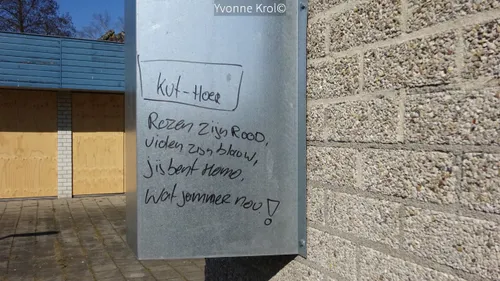 Yvonne Krol©
Kut-Hoer
Rozen zijn Rood,
violen zijn blauw,
jij bent Homo,
Wat jammer nou!